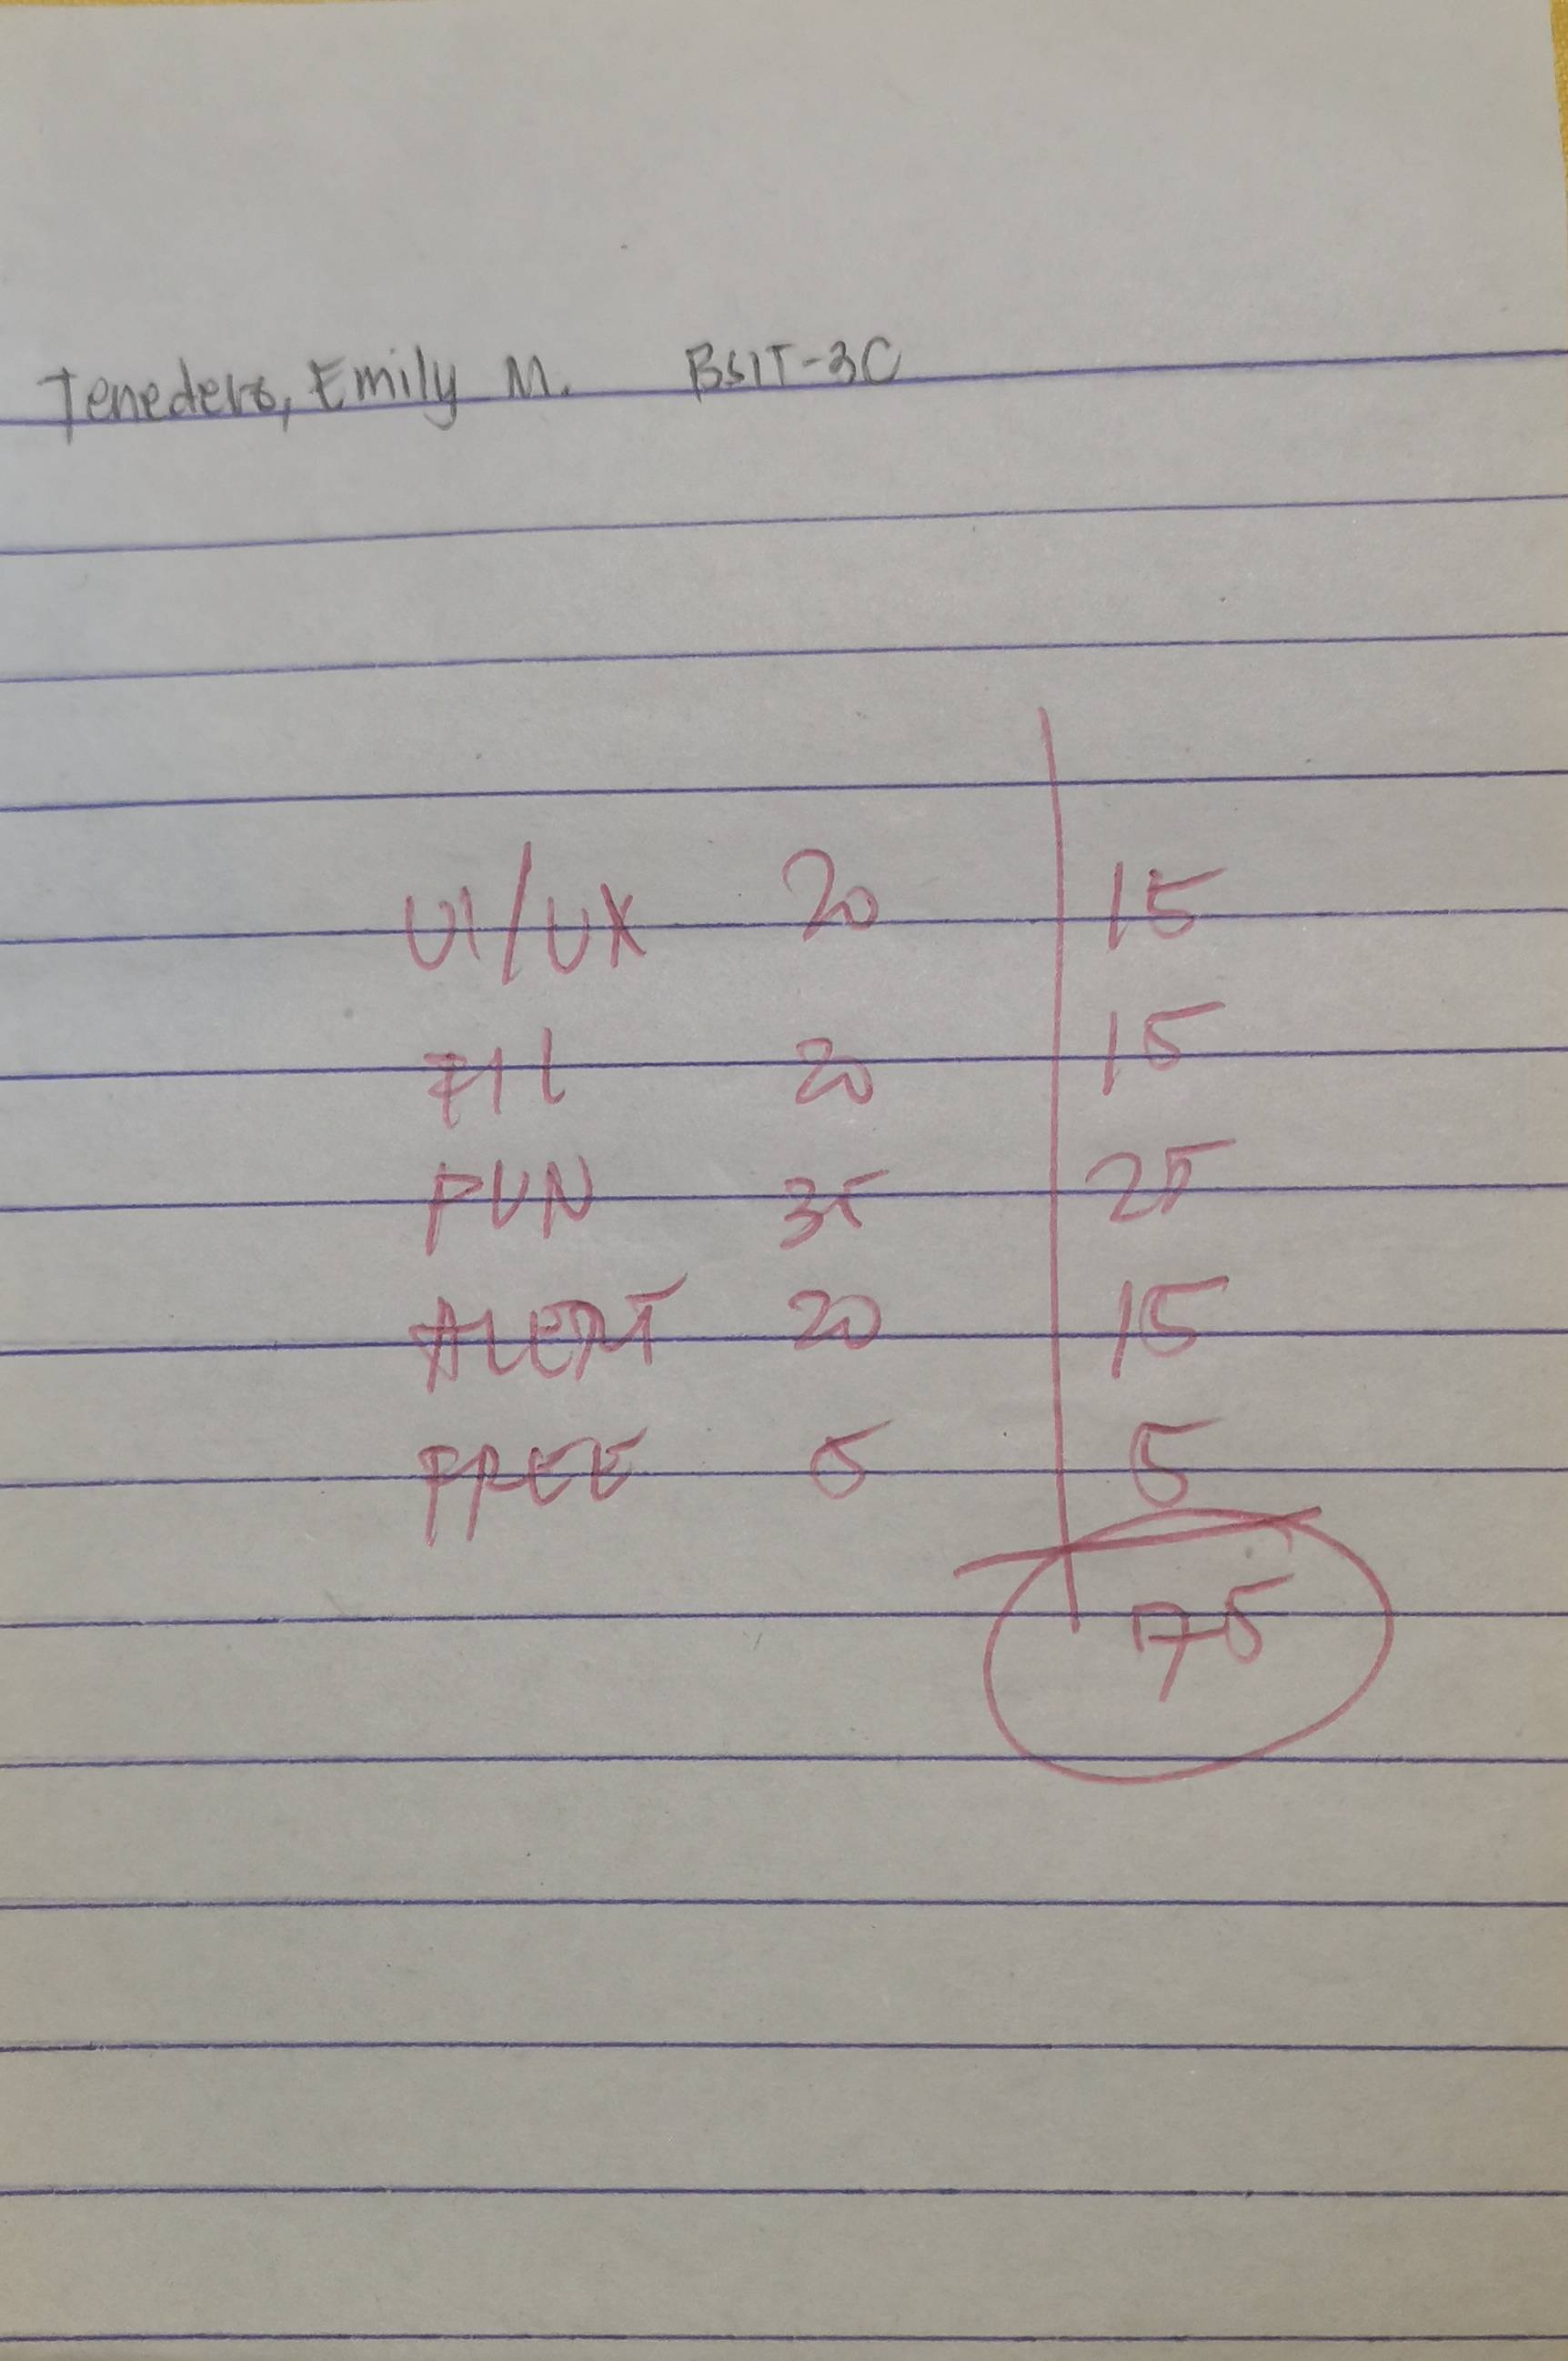 Tenedero, Emily M. BSIT-3C
UI/UX 20 15
FIL 20 15
FUN 35 25
ALERT 20 15
FREE 5 5
75